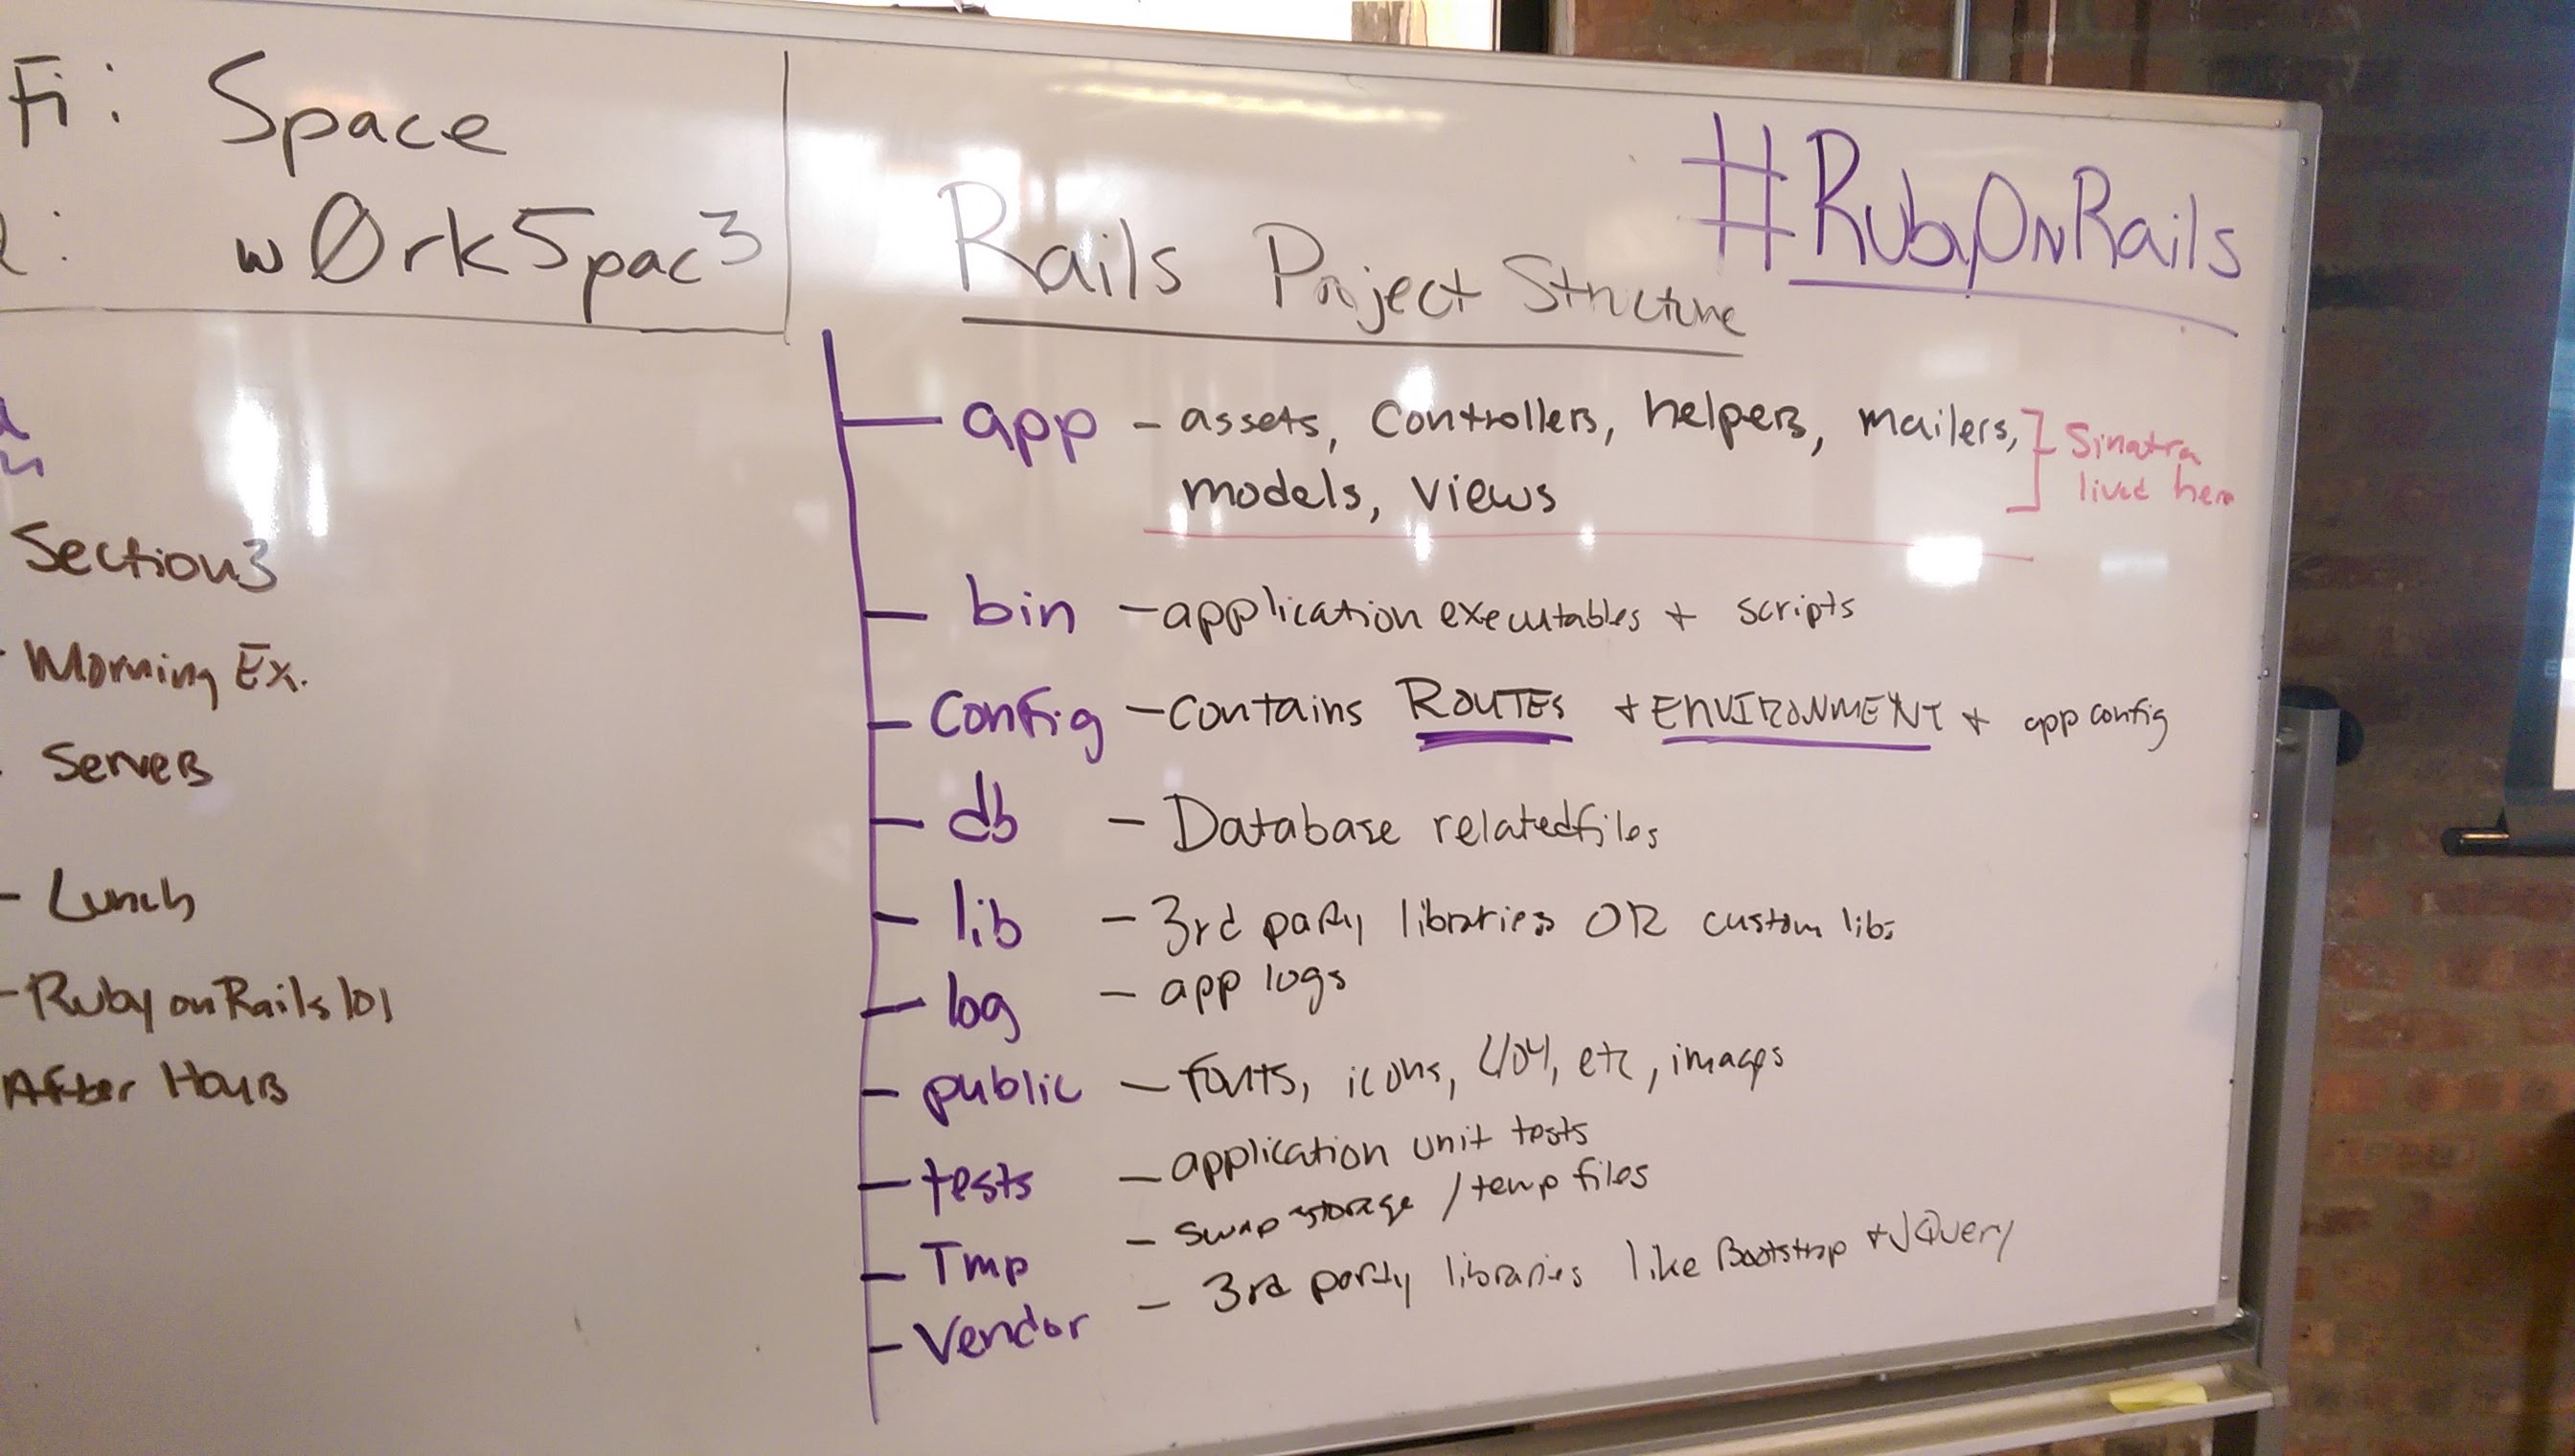 Fi: Space
w0rk5pac3
Section3
Morning Ex.
Servers
- Lunch
- Ruby on Rails 101
After Hours
#RubyOnRails
Rails Project Structure
app - assets, Controllers, helpers, mailers,
models, views
Sinatra
lived here
bin - application executables + scripts
Config - contains ROUTES + ENVIRONMENT + app config
db - Database related files
lib - 3rd party libraries OR custom libs
log - app logs
public - fonts, icons, 404, etc, images
tests - application unit tests
Tmp - swap storage / temp files
Vendor - 3rd party libraries like Bootstrap + JQuery